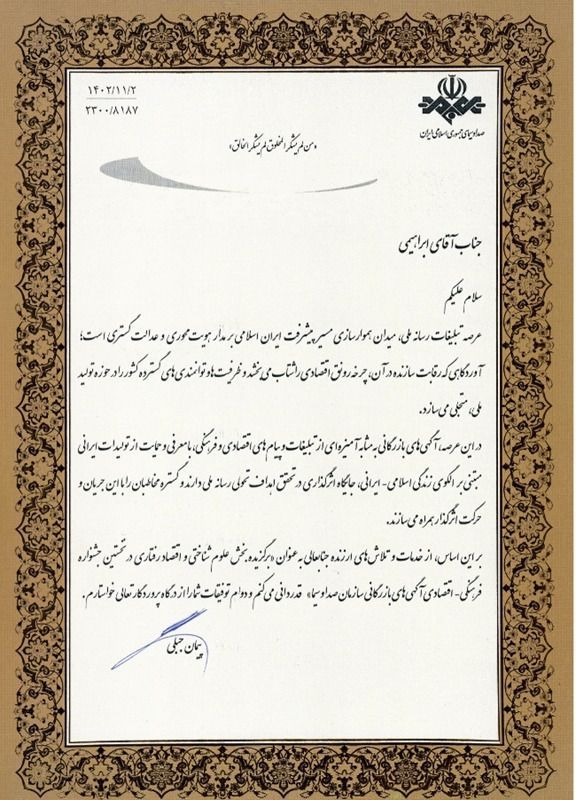 ۱۴۰۲/۱۱/۲
۲۳۰۰/۸۱۸۷
صدا و سیمای جمهوری اسلامی ایران
«من لم یشکر المخلوق لم یشکر الخالق»
جناب آقای ابراهیمی
سلام علیکم
عرصه تبلیغات رسانه ملی، میدان هموارسازی مسیر پیشرفت ایران اسلامی بر مدار هویت محوری و عدالت گستری است؛
آوردگاهی که رقابت سازنده در آن، چرخه رونق اقتصادی را شتاب می بخشد و ظرفیت ها و توانمندی های گسترده کشور را در حوزه تولید
ملی، متجلی می سازد.
در این عرصه، آگهی های بازرگانی به مثابه آمیزه ای از تبلیغات و پیام های اقتصادی و فرهنگی، با معرفی و حمایت از تولیدات ایرانی
مبتنی بر الگوی زندگی اسلامی - ایرانی، جایگاه اثرگذاری در تحقق اهداف تحولی رسانه ملی دارند و گستره مخاطبان را با این جریان و
حرکت اثرگذار همراه می سازند.
بر این اساس، از خدمات و تلاش های ارزنده جنابعالی به عنوان «برگزیده بخش علوم شناختی و اقتصاد رفتاری در نخستین جشنواره
فرهنگی - اقتصادی آگهی های بازرگانی سازمان صدا و سیما» قدردانی می کنم و دوام توفیقات شما را از درگاه پروردگار تعالی خواستارم.
پیمان جبلی